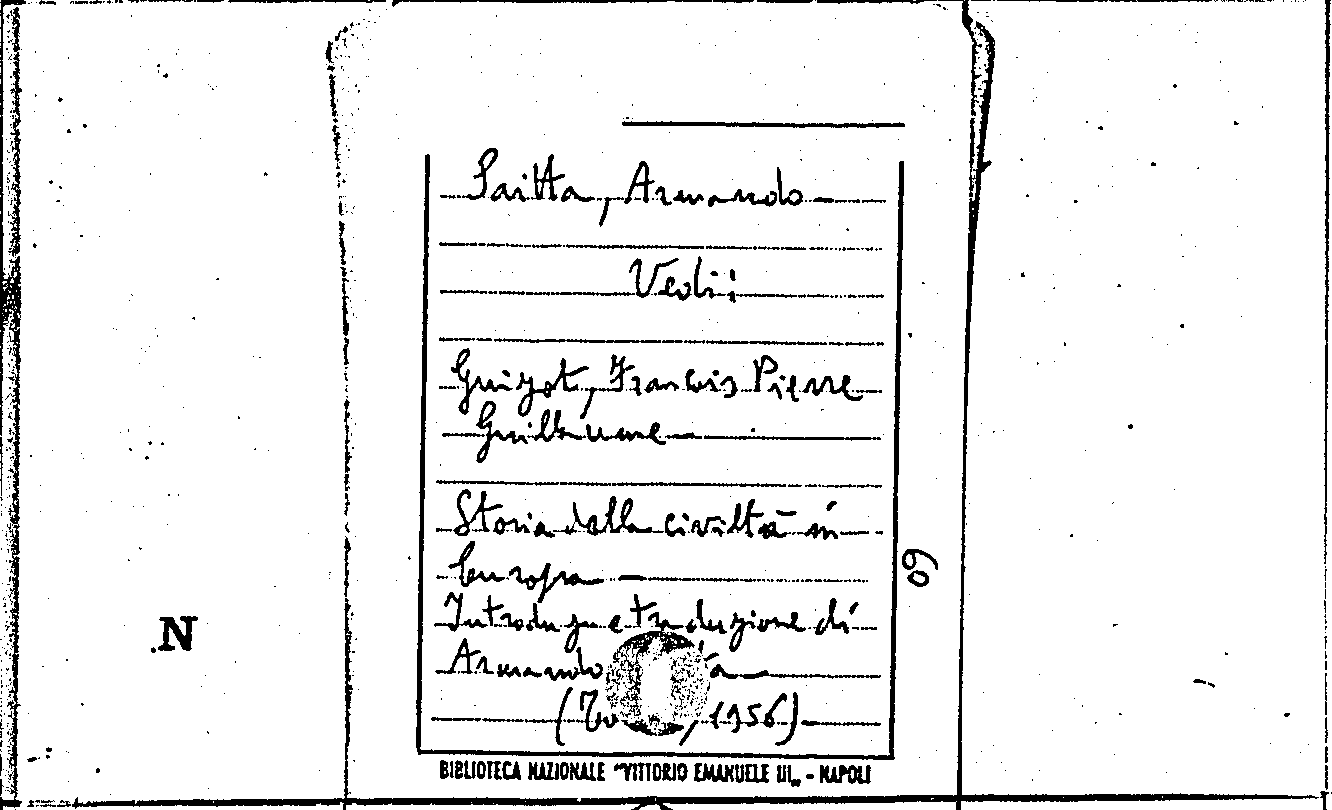 Saitta, Armando
Vedi:
Guizot, François Pierre
Guillaume
Storia della civiltà in
Europa
Introduz. e traduzione di
Armando
1956)
BIBLIOTECA NAZIONALE "VITTORIO EMANUELE III„ - NAPOLI
60
N